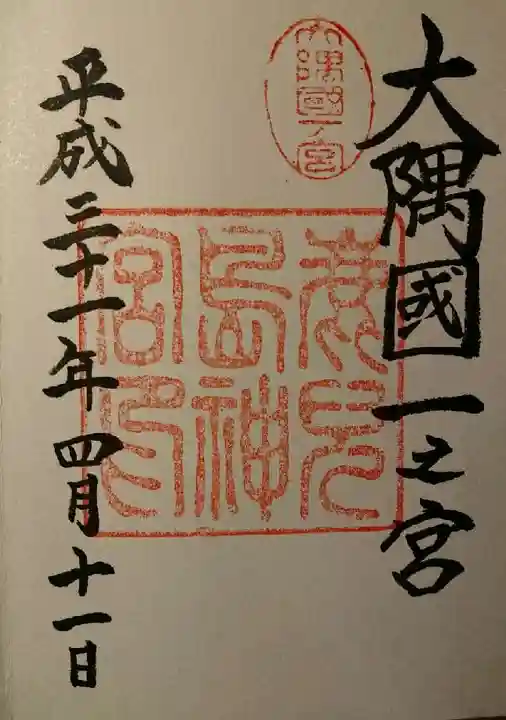 大隅國一之宮
大隅國一ノ宮
鹿兒
島神
宮印
平成三十一年四月十一日